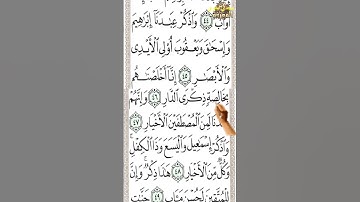 أَوَّابٌ ﴿٤٤﴾ وَٱذْكُرْ عِبَٰدَنَآ إِبْرَٰهِيمَ
وَإِسْحَٰقَ وَيَعْقُوبَ أُو۟لِى ٱلْأَيْدِى
وَٱلْأَبْصَٰرِ ﴿٤٥﴾ إِنَّآ أَخْلَصْنَٰهُم
بِخَالِصَةٍ ذِكْرَى ٱلدَّارِ ﴿٤٦﴾ وَإِنَّهُمْ
عِندَنَا لَمِنَ ٱلْمُصْطَفَيْنَ ٱلْأَخْيَارِ ﴿٤٧﴾
وَٱذْكُرْ إِسْمَٰعِيلَ وَٱلْيَسَعَ وَذَا ٱلْكِفْلِ
وَكُلٌّ مِّنَ ٱلْأَخْيَارِ ﴿٤٨﴾ هَٰذَا ذِكْرٌ وَإِنَّ
لِلْمُتَّقِينَ لَحُسْنَ مَـَٔابٍ ﴿٤٩﴾ جَنَّٰتِ